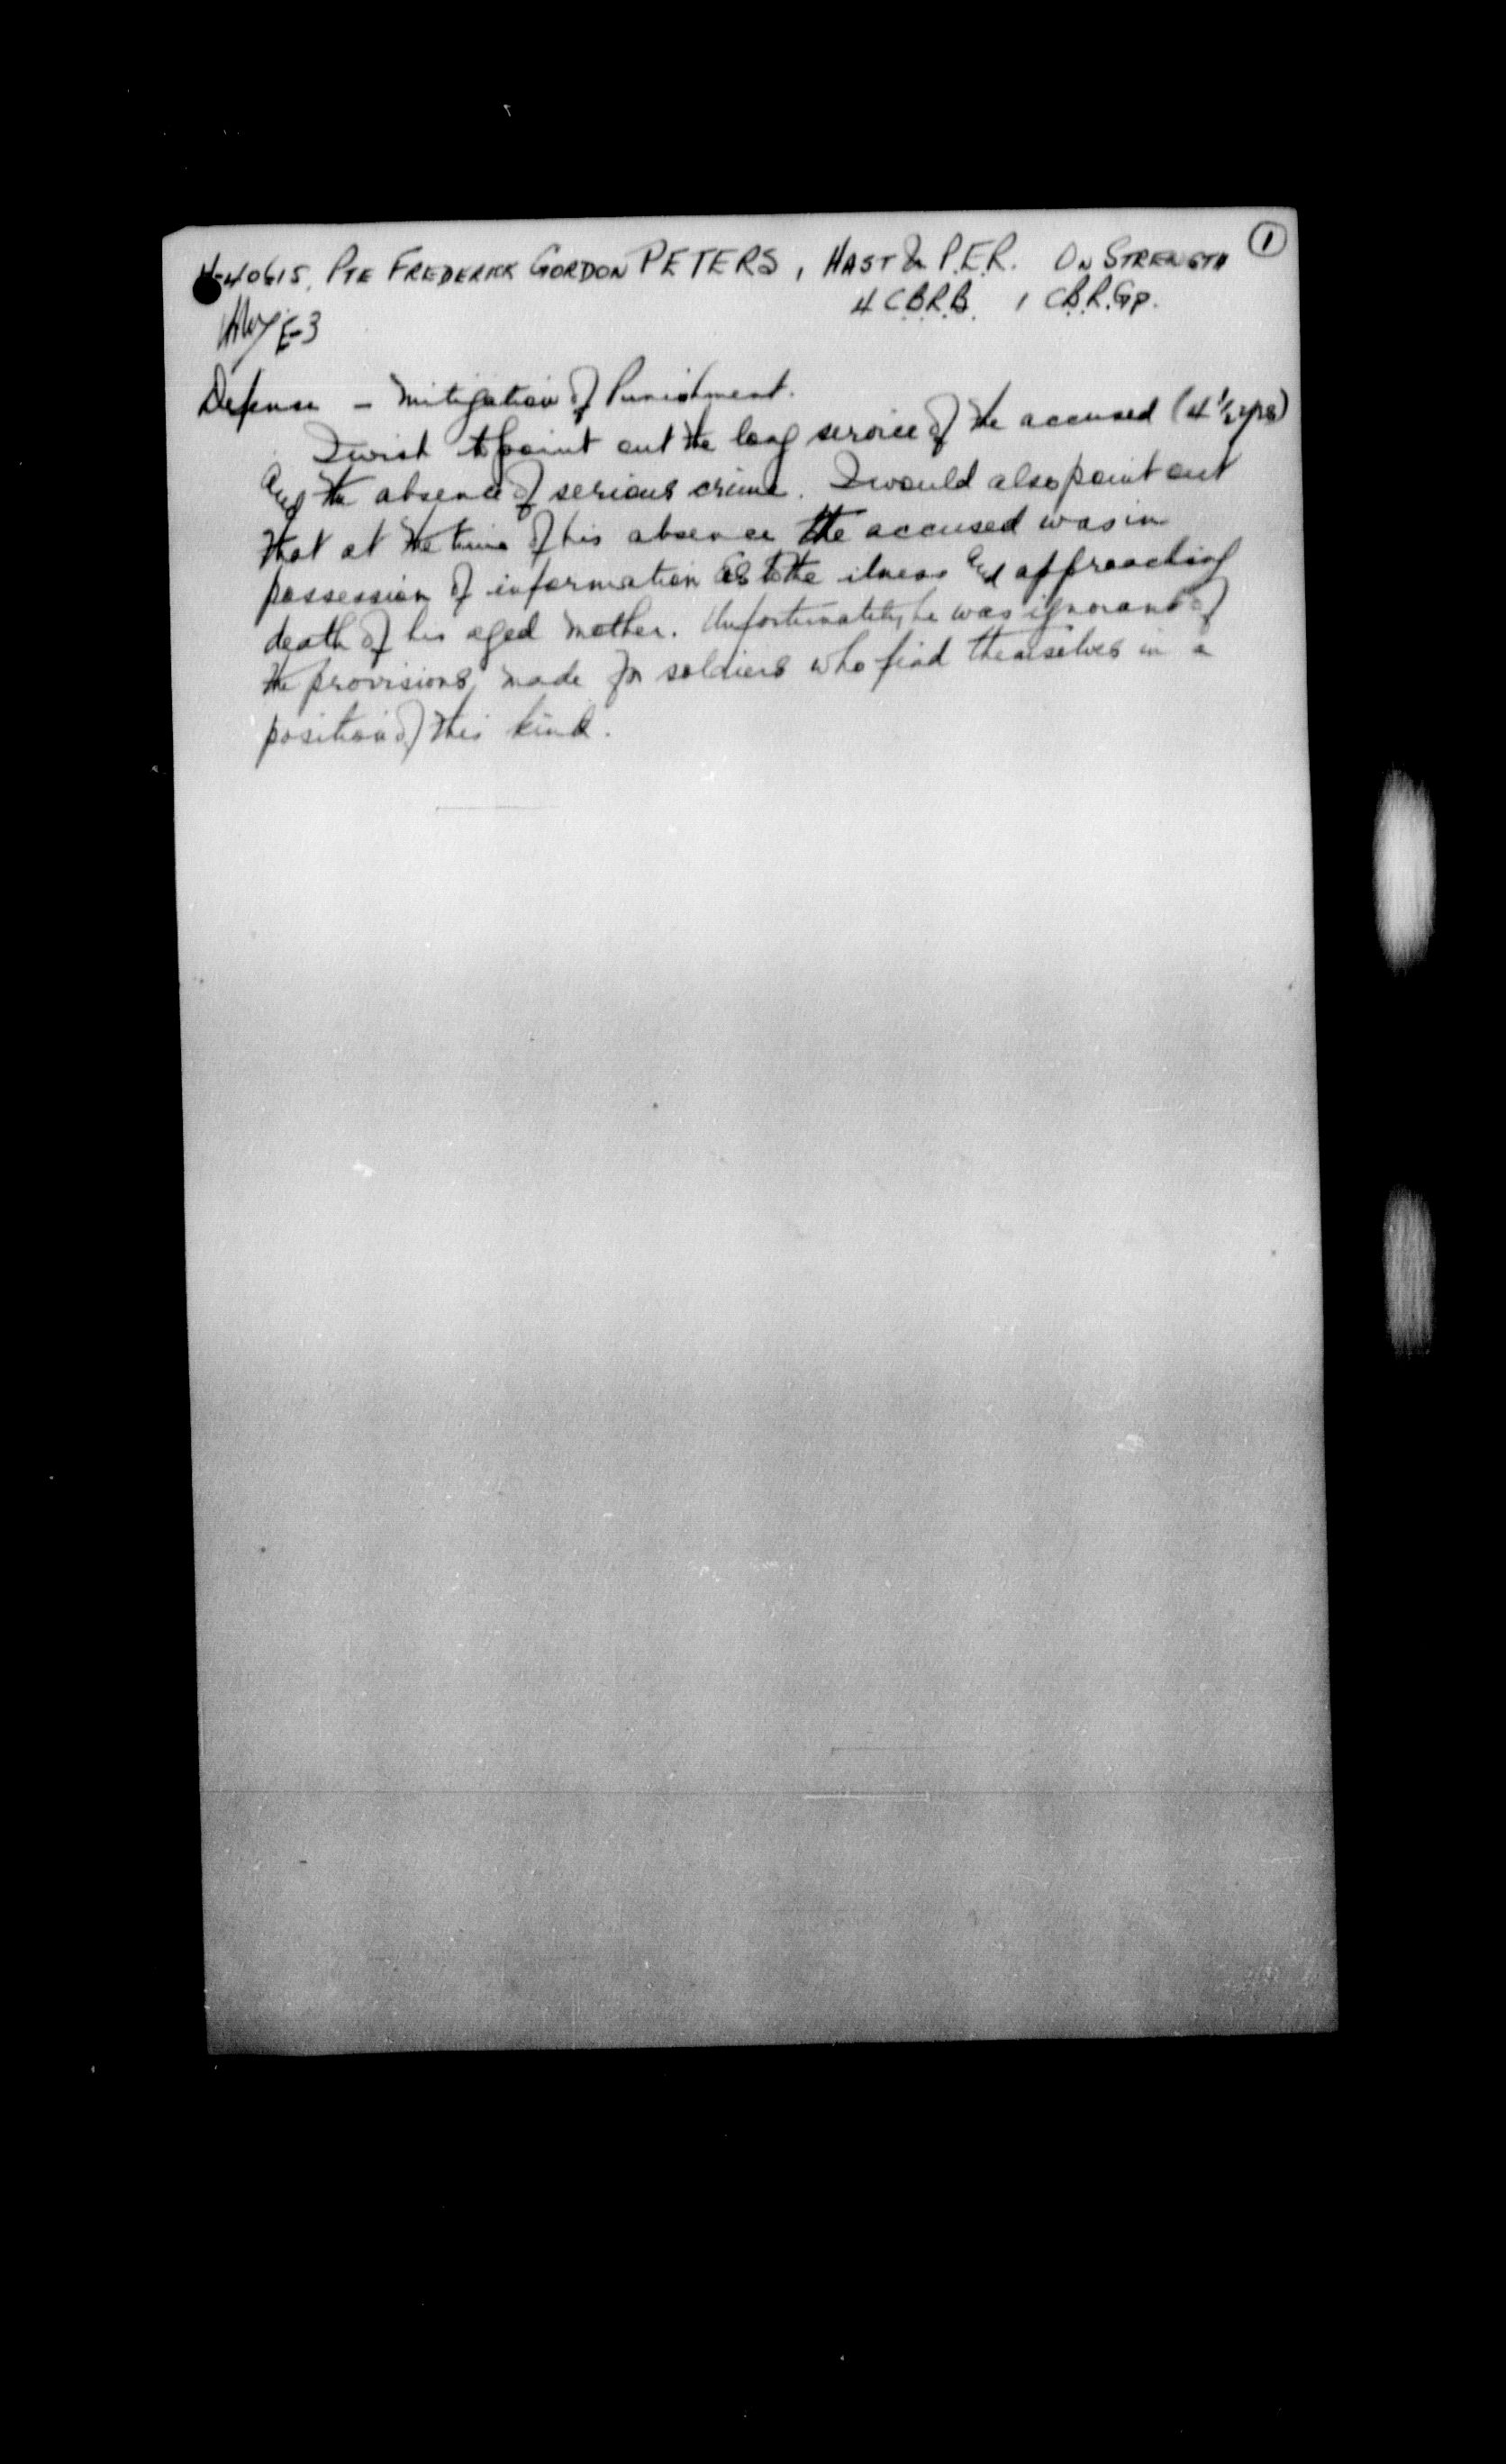 H-40615, PTE FREDERICK GORDON PETERS, HAST & P.E.R. ON STRENGTH 1
4 C.B.R.B. 1 C.B.R.Gp.
E-3
Defense - Mitigation of Punishment.
I wish to point out the long service of the accused (4 1/2 yrs)
and the absence of serious crime. I would also point out
that at the time of his absence the accused was in
possession of information as to the ilness and approaching
death of his aged mother. Unfortunately, he was ignorant of
the provisions made for soldiers who find themselves in a
position of this kind.